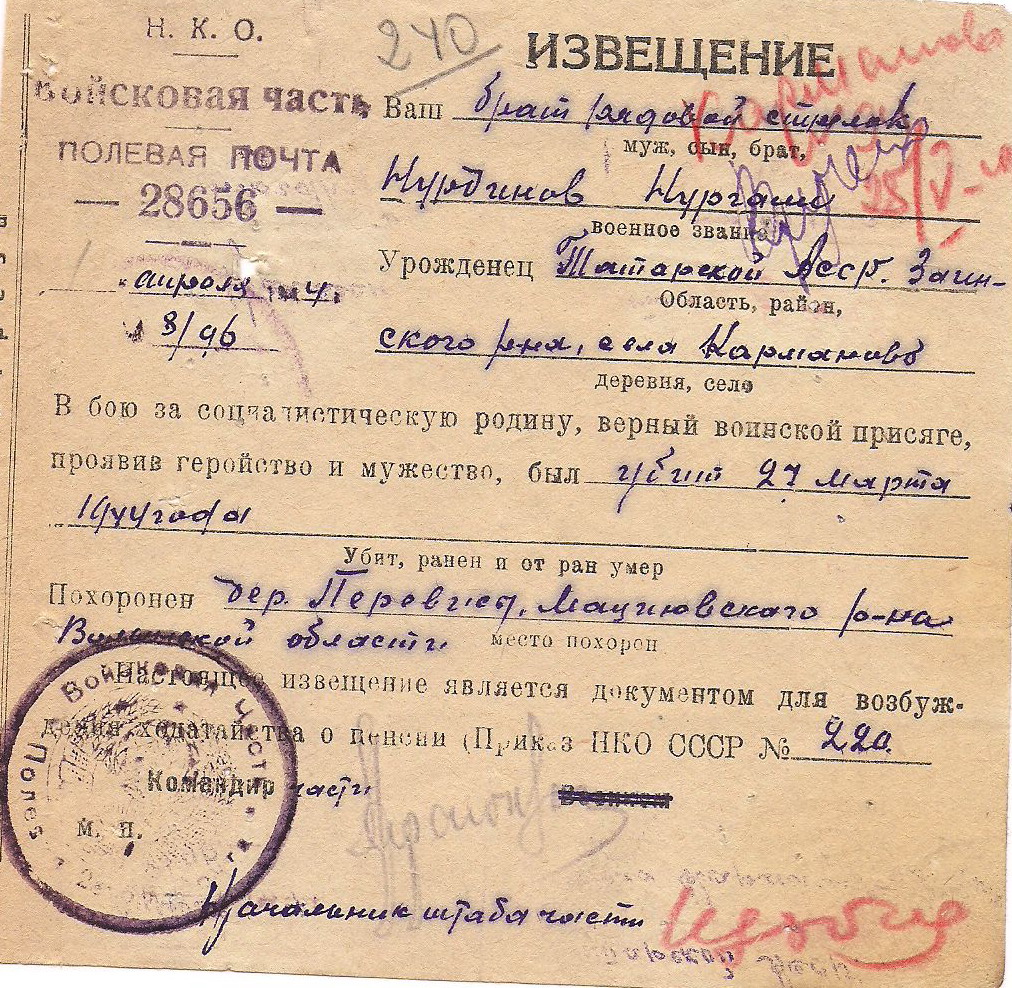 Н. К. О.
Войсковая часть
ПОЛЕВАЯ ПОЧТА
— 28656 —
апреля 194
8/96
240
ИЗВЕЩЕНИЕ
Ваш брат рядовой стрелок
муж, сын, брат,
Нурдинов Нургали
военное звание
Урожденец Татарской Асср. Заин-
Область, район,
ского р-на, села Карманово
деревня, село
В бою за социалистическую родину, верный воинской присяге,
проявив геройство и мужество, был убит 27 марта
1944 года
Убит, ранен и от ран умер
Похоронен дер. Перевисы, Мациювского р-на
Волынской области
место похорон
Настоящее извещение является документом для возбуж-
дения ходатайства о пенсии (Приказ НКО СССР № 220
Командир части
м. п.
Начальник штаба части
25/V